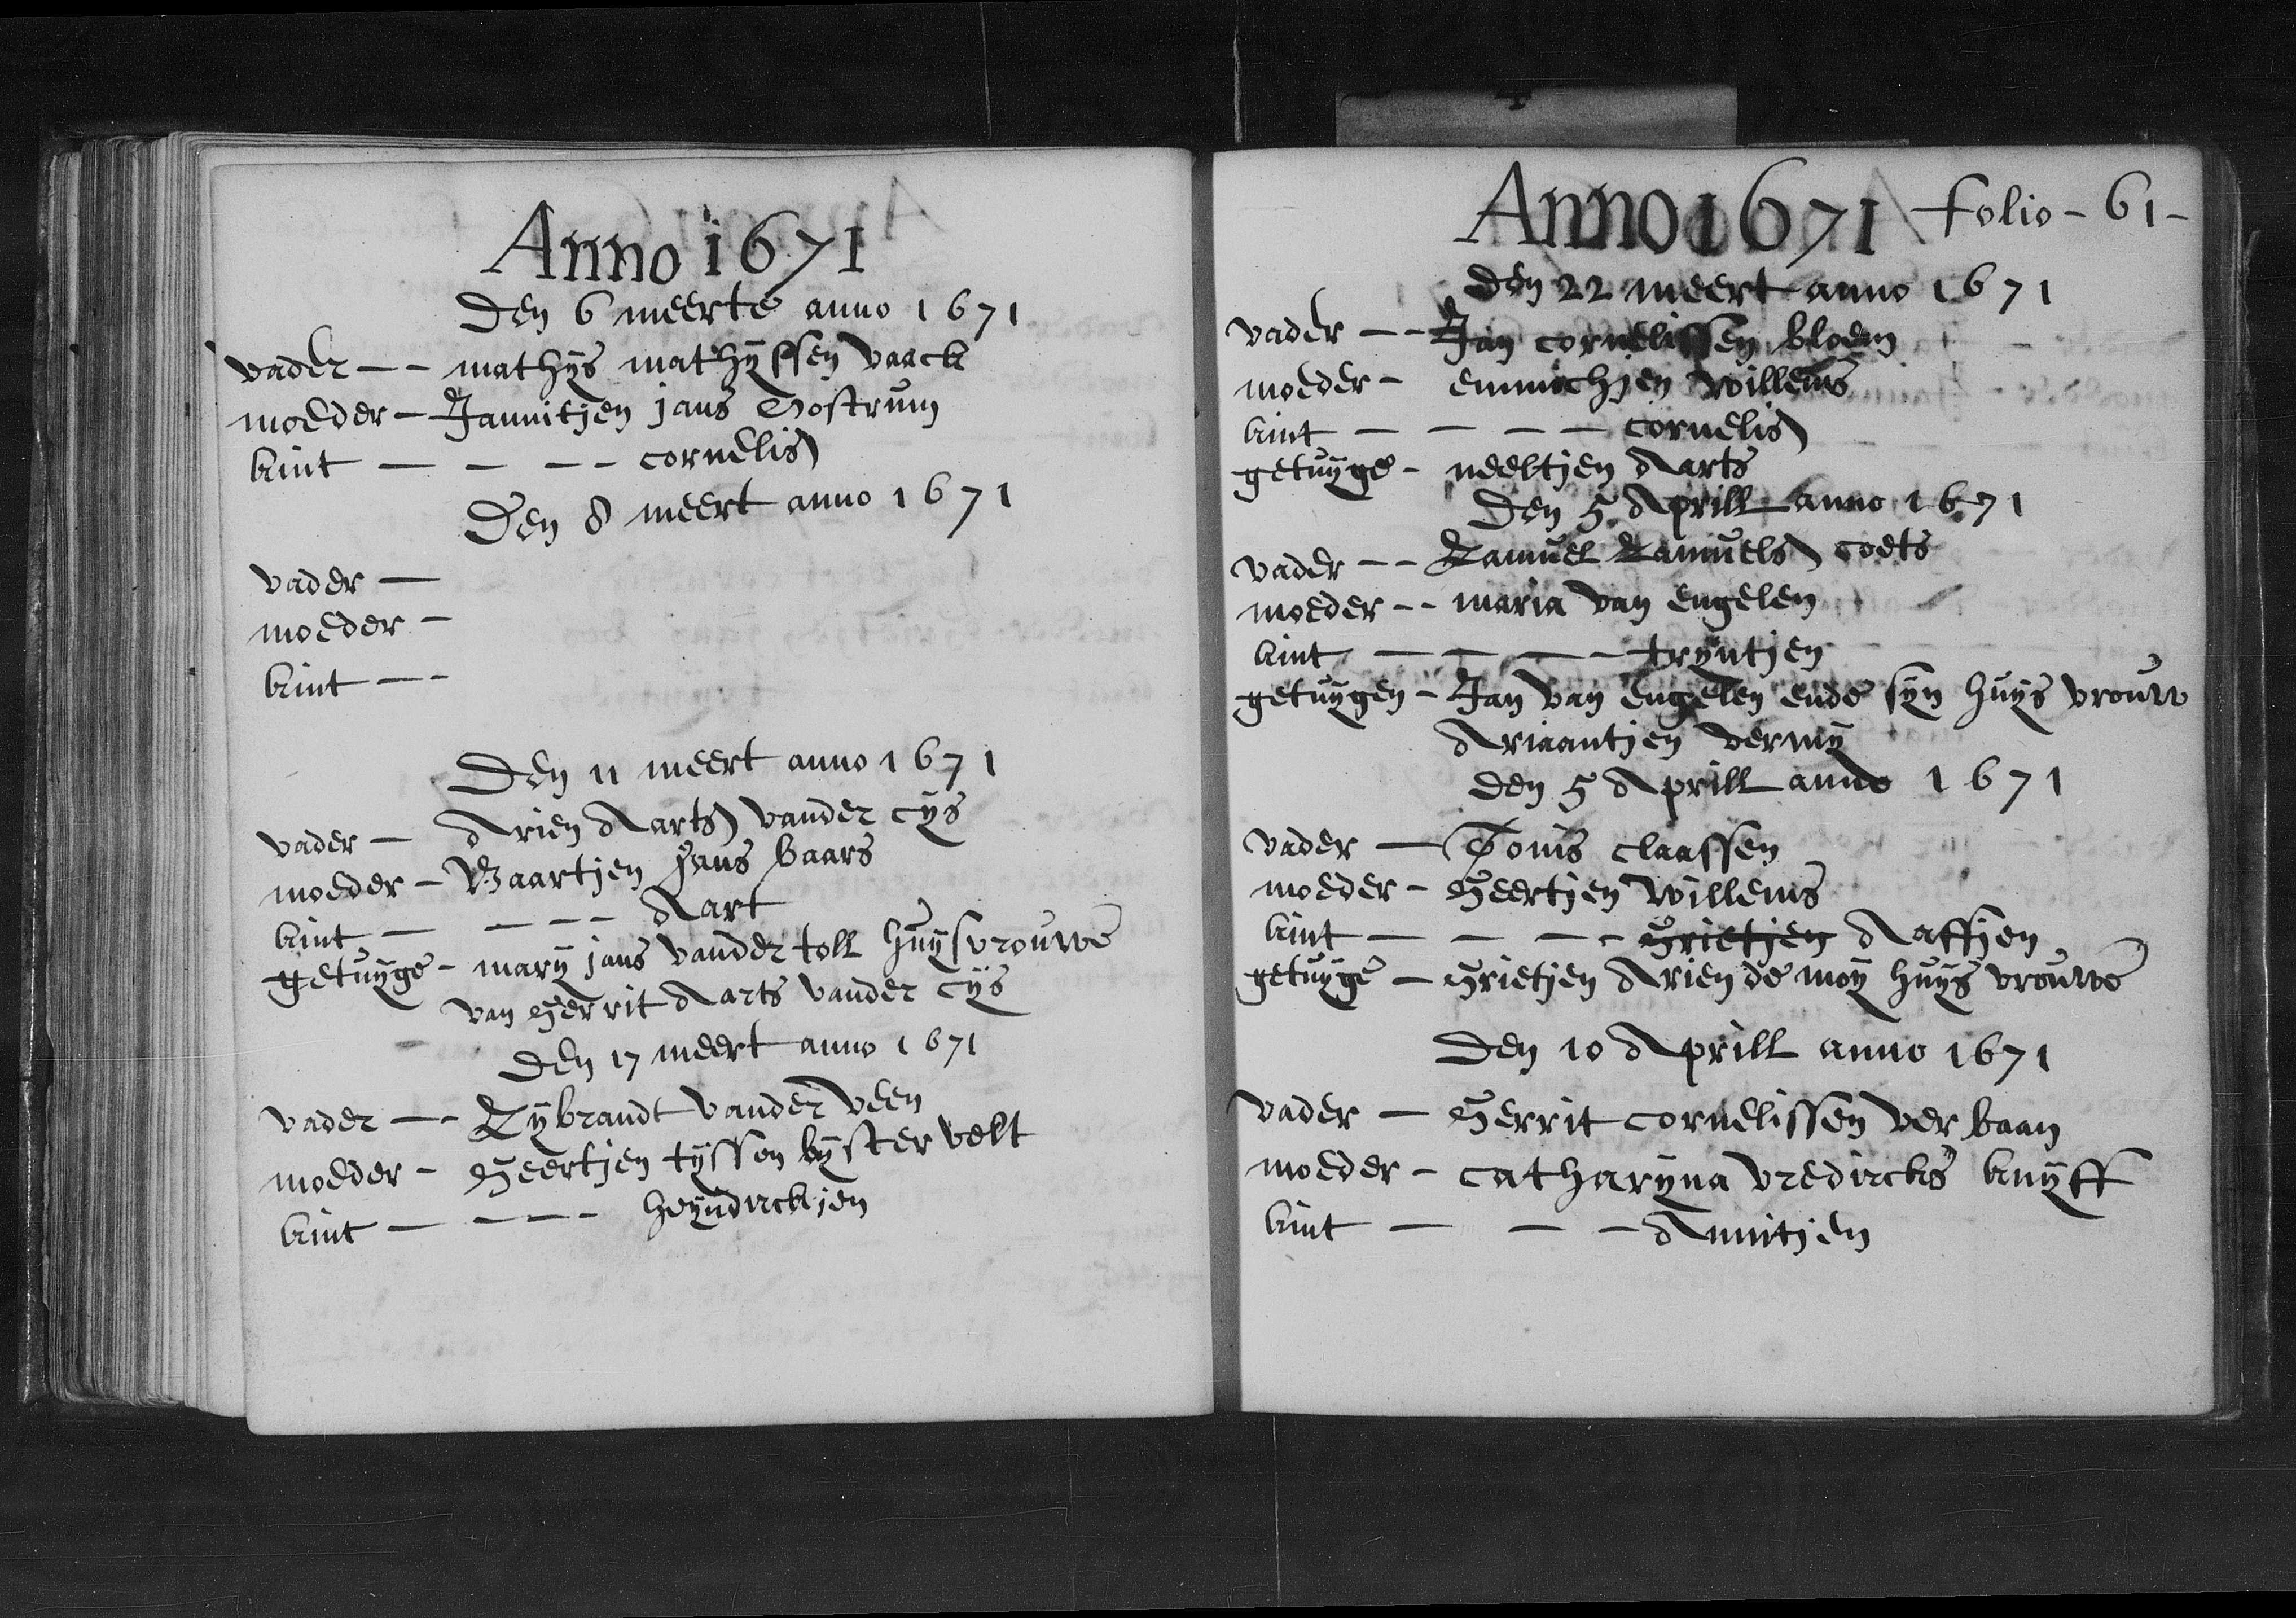 Anno 1671
Den 6 meerte anno 1671
vader -- mathijs mathijssen vaack
moeder - Jannitjen jans Oostrum
kint - - -- cornelis
Den 8 meert anno 1671
vader -
moeder -
kint --
Den 11 meert anno 1671
vader - Arien Aarts vander cijs
moeder - Baartjen Jans baars
kint - - - - Aart
getuijge - marij jans vander toll huijsvrouwe
van Gerrit Aarts vander cijs
Den 17 meert anno 1671
vader -- Sijbrandt vander veen
moeder - Geertjen tijssen bijster velt
kint - - -- heijndrickjen
Anno 1671 folio - 61 -
den 22 meert anno 1671
vader -- Jan cornelissen bloem
moeder - emmichjen willems
kint - - - - cornelis
getuijge - neeltjen Aarts
Den 5 Aprill anno 1671
vader -- Samuel Samuels coets
moeder -- maria van engelen
kint - - - - trijntjen
getuijgen - Jan van engelen ende sijn huijs vrouw
Ariaantjen vermij
den 5 Aprill anno 1671
vader - Tonis claassen
moeder - Geertjen willems
kint - - -- Grietjen Aaffjen
getuijge - Grietjen Arien de moij huijs vrouwe
Den 10 Aprill anno 1671
vader - Gerrit cornelissen ver baan
moeder - catharyna vredircks knijff
kint - - - Annitjen